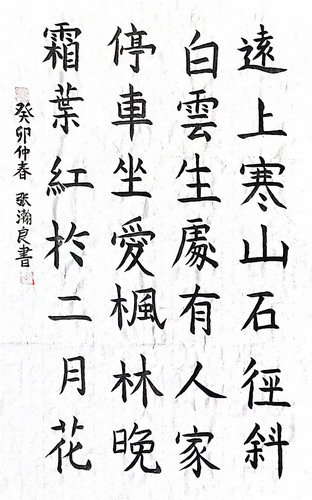 遠上寒山石徑斜
白雲生處有人家
停車坐愛楓林晚
霜葉紅於二月花
癸卯仲春 張瀚良書